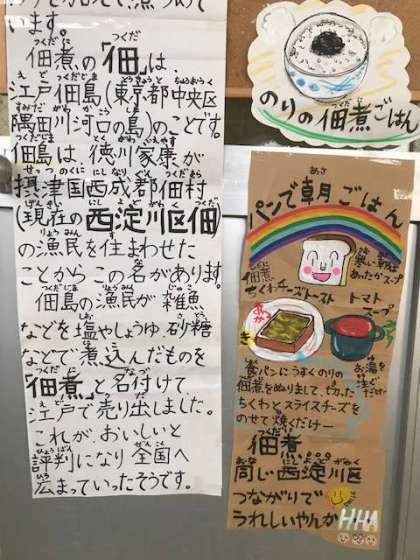 います。
佃煮の「佃」は
江戸佃島(東京都中央区
隅田川河口の島)のことです。
佃島は、徳川家康が
摂津国西成郡佃村
(現在の西淀川区佃)
の漁民を住まわせた
ことからこの名があります。
佃島の漁民が雑魚
などを塩やしょうゆ、砂糖
などで煮込んだものを
「佃煮」と名付けて
江戸で売り出しました。
これがおいしいと
評判になり全国へ
広まっていったそうです。
のりの佃煮ごはん
パンで朝ごはん
寒い朝は
あったかスープ
佃煮
ちくわチーズトースト
トマト
スープ
あつ
お湯を
注ぐ
だけー
食パンにうすくのりの
佃煮をぬりまして、切った
ちくわとスライスチーズを
のせて焼くだけー
佃煮
同じ西淀川区
つながりで
うれしいやんか